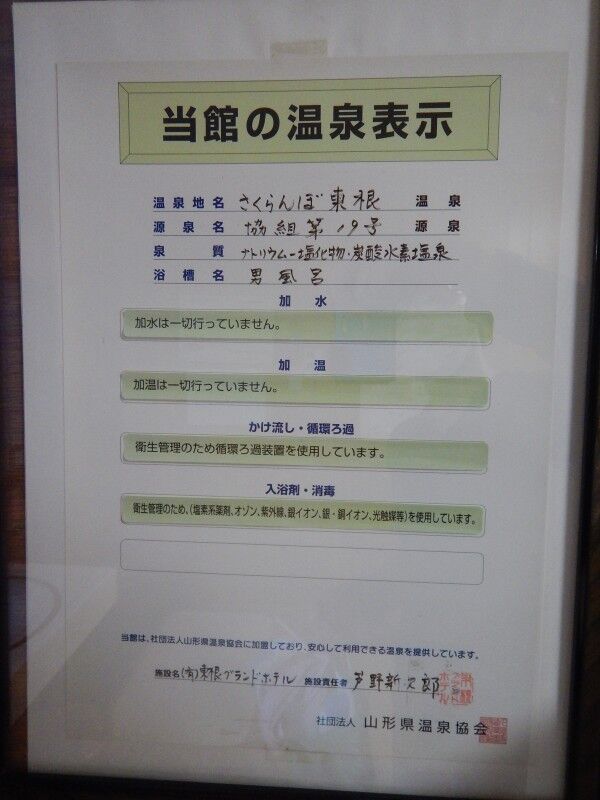 当館の温泉表示
温泉地名 さくらんぼ東根 温泉
源泉名 協組第19号 源泉
泉質 ナトリウム－塩化物・炭酸水素塩泉
浴槽名 男風呂
加水
加水は一切行っていません。
加温
加温は一切行っていません。
かけ流し・循環ろ過
衛生管理のため循環ろ過装置を使用しています。
入浴剤・消毒
衛生管理のため、(塩素系薬剤、オゾン、紫外線、銀イオン、銀・銅イオン、光触媒等)を使用しています。
当館は、社団法人山形県温泉協会に加盟しており、安心して利用できる温泉を提供しています。
施設名 (有)東根グランドホテル 施設責任者 芦野新次郎
社団法人 山形県温泉協会